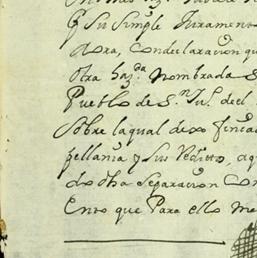 y su simple Juramento
Nora, Condeclaracion qu
otra haz.da Nombrada S
Pueblo de S.n Ju.o del
Sobre laqual dexo fincad
pellania y sus Redittos, aq
do dha Separacion Con
Ento que Para ello me